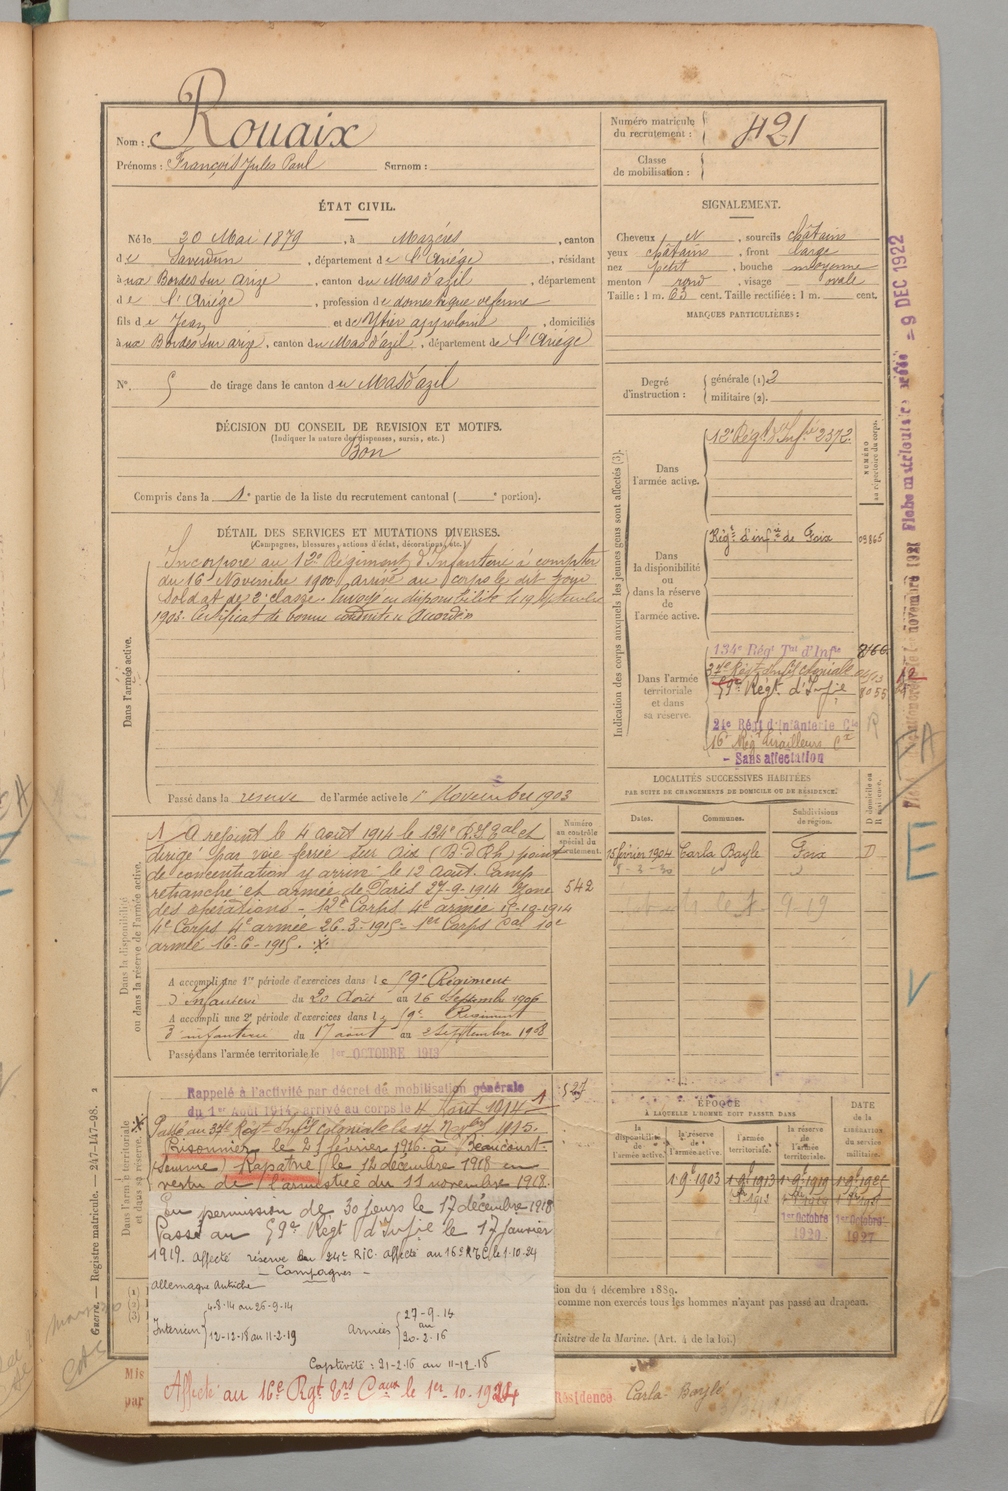 Nom : Rouaix
Prénoms : François Jules Paul Surnom :
Numéro matricule du recrutement : 421
Classe de mobilisation :
ÉTAT CIVIL.
Né le 20 Mai 1879, à Mazères, canton
de Saverdun, département de l'Ariége, résidant
à ux Bordes sur Arize, canton du Mas d'azil, département
de l'Ariége, profession de domestique de ferme
fils de Jean et de Ytier appolonie, domiciliés
à ux Bordes sur arize, canton du Mas d'azil, département de l'Ariége
N°. de tirage dans le canton du Mas d'azil
DÉCISION DU CONSEIL DE REVISION ET MOTIFS.
(Indiquer la nature des dispenses, sursis, etc.)
Bon
Compris dans la 1e partie de la liste du recrutement cantonal ( e portion).
SIGNALEMENT.
Cheveux N, sourcils châtains
yeux châtains, front large
nez petit, bouche moyenne
menton rond, visage ovale
Taille : 1 m. 63 cent. Taille rectifiée : 1 m. cent.
MARQUES PARTICULIÈRES :
Degré d'instruction : générale (1) 3
militaire (2).
DÉTAIL DES SERVICES ET MUTATIONS DIVERSES.
(Campagnes, blessures, actions d'éclat, décorations, etc.)
Dans l'armée active.
Incorporé au 12e Régiment d'Infanterie à compter
du 16 Novembre 1900, arrivé au corps le dit jour
Soldat de 2e classe. Envoyé en disponibilité le 19 septembre
1903. Certificat de bonne conduite "Accordé"
Passé dans la reserve de l'armée active le 1er Novembre 1903
Indication des corps auxquels les jeunes gens sont affectés (3).
NUMÉRO au répertoire du corps.
Dans l'armée active.
12e Régt d'Infie 2372
Dans la disponibilité ou dans la réserve de l'armée active.
Régt d'infie de Foix
Dans l'armée territoriale et dans sa réserve.
134e Régt Tal d'Infie
37e Régt d'Inf coloniale
59e Régt d'Infie
21e Régt d'infanterie Cle
16e Régt tirailleurs
- Sans affectation
Dans la disponibilité ou dans la réserve de l'armée active.
Numéro au contrôle spécial du recrutement.
542
A rejoint le 4 août 1914 le 134e R.I. Tal et
dirigé par voie ferrée sur Aix (B. d Rh) point
de concentration y arrivé le 12 Août. Camp
retranché et armée de Paris 27-9-1914 Zone
des opérations - 12e Corps 4e armée 15-12-1914
4e Corps 4e armée 26.3.1915 - 1er Corps Cal 10e
armée 16-6-1915.
A accompli une 1re période d'exercices dans le 59e Régiment
d'Infanterie du 20 Août au 16 Septembre 1906
A accompli une 2e période d'exercices dans le 59e Régiment
d'infanterie du 17 août au 2 Septembre 1908
Passé dans l'armée territoriale le 1er OCTOBRE 1913
LOCALITÉS SUCCESSIVES HABITÉES
PAR SUITE DE CHANGEMENTS DE DOMICILE OU DE RÉSIDENCE.
Dates. Communes. Subdivisions de région. D domicile ou R résidence.
15 février 1904 Carla Bayle Foix D
Dans l'armée territoriale et dans sa réserve.
527
Rappelé à l'activité par décret de mobilisation générale
du 1er Août 1914, arrivé au corps le 4 Août 1914
Passé au 37e Régt Infie Coloniale le 14 9bre 1915.
Prisonnier le 21 février 1916 à Beaucourt
(Somme) Rapatrié le 12 décembre 1918 en
vertu de l'armistice du 11 novembre 1918.
En permission de 30 jours le 17 décembre 1918
Passé au 59e Régt d'Infie le 17 Janvier
1919. Affecté réserve du 24e RIC. affecté au 16e RTC le 1.10.24
- Campagnes -
Allemagne Autriche
Intérieur 4-8-14 au 26-9-14
12-12-18 au 11-2-19
Armées 27-9-14
au
20-2-16
Captivité : 21-2-16 au 11-12-18
Affecté au 16e Rgt Tirs Caux le 1er-10-1924
ÉPOQUE
À LAQUELLE L'HOMME DOIT PASSER DANS
la disponibilité de l'armée active. la réserve de l'armée active. l'armée territoriale. la réserve de l'armée territoriale. DATE de la LIBÉRATION du service militaire.
1er Octobre 1920
1er Octobre 1927
tion du 4 décembre 1889.
comme non exercés tous les hommes n'ayant pas passé au drapeau.
Ministre de la Marine. (Art. 4 de la loi.)
Mis
par
Résidence Carla-Bayle
Guerre. — Registre matricule. — 247-147-98. 2
= 9 DEC 1922